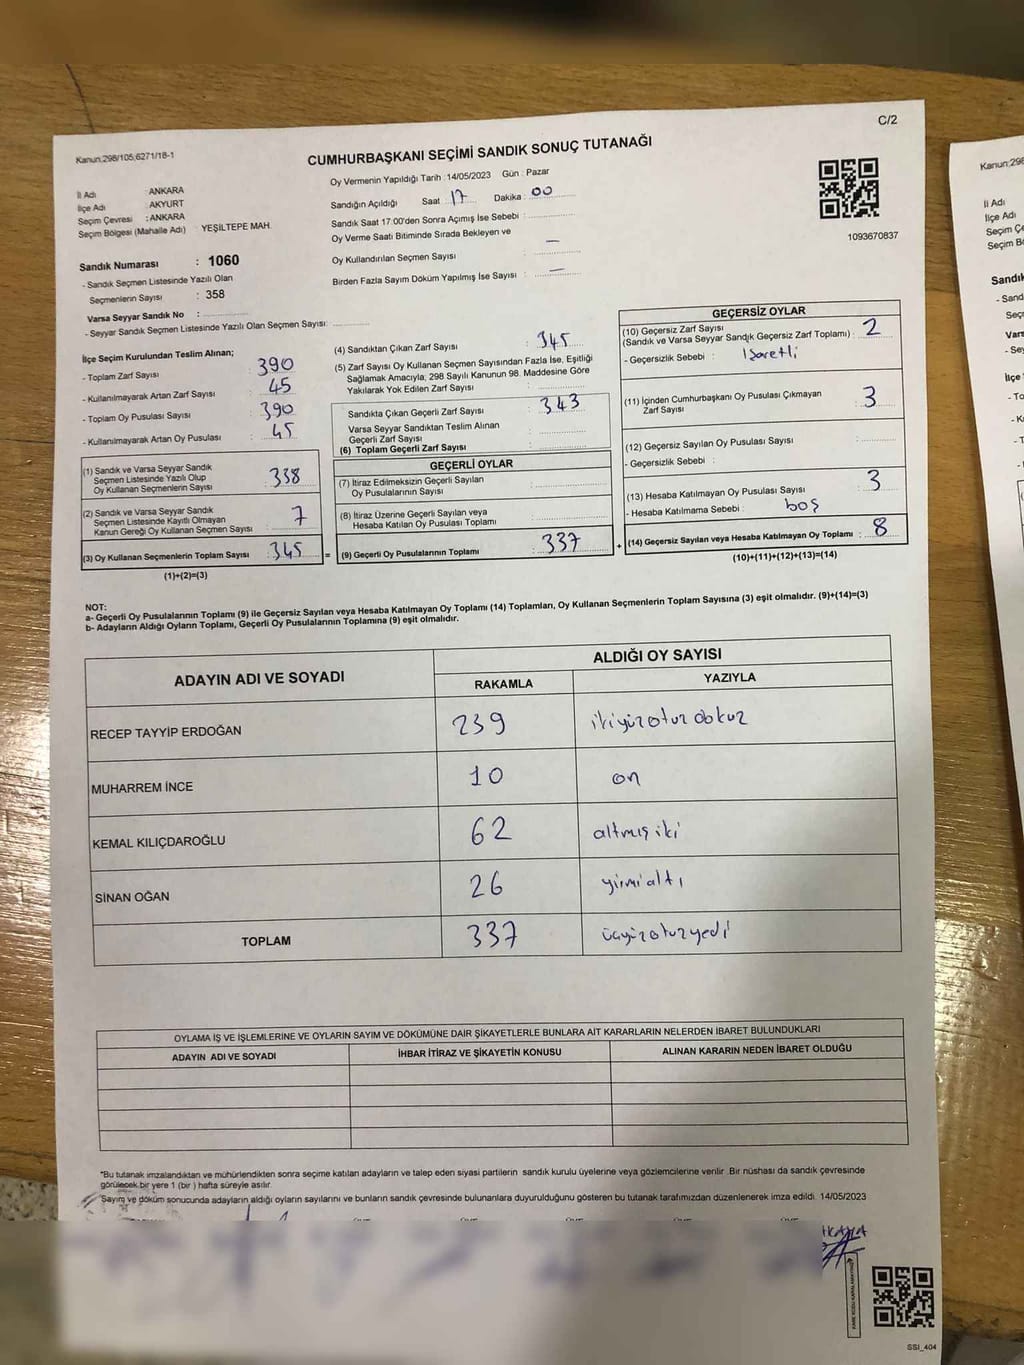 C/2
Kanun;298/105;6271/18-1
CUMHURBAŞKANI SEÇİMİ SANDIK SONUÇ TUTANAĞI
İl Adı : ANKARA
İlçe Adı : AKYURT
Seçim Çevresi : ANKARA
Seçim Bölgesi (Mahalle Adı) : YEŞİLTEPE MAH.
Oy Vermenin Yapıldığı Tarih :14/05/2023 Gün : Pazar
Sandığın Açıldığı Saat : 17 Dakika : 00
Sandık Saat 17:00'den Sonra Açımış İse Sebebi :
Oy Verme Saati Bitiminde Sırada Bekleyen ve
Oy Kullandırılan Seçmen Sayısı : —
Birden Fazla Sayım Döküm Yapılmış İse Sayısı : —
1093670837
Sandık Numarası : 1060
- Sandık Seçmen Listesinde Yazılı Olan
Seçmenlerin Sayısı : 358
Varsa Seyyar Sandık No :
- Seyyar Sandık Seçmen Listesinde Yazılı Olan Seçmen Sayısı:
İlçe Seçim Kurulundan Teslim Alınan;
- Toplam Zarf Sayısı : 390
- Kullanılmayarak Artan Zarf Sayısı : 45
- Toplam Oy Pusulası Sayısı : 390
- Kullanılmayarak Artan Oy Pusulası : 45
(1) Sandık ve Varsa Seyyar Sandık
Seçmen Listesinde Yazılı Olup
Oy Kullanan Seçmenlerin Sayısı : 338
(2) Sandık ve Varsa Seyyar Sandık
Seçmen Listesinde Kayıtlı Olmayan
Kanun Gereği Oy Kullanan Seçmen Sayısı : 7
(3) Oy Kullanan Seçmenlerin Toplam Sayısı : 345 =
(1)+(2)=(3)
(4) Sandıktan Çıkan Zarf Sayısı : 345
(5) Zarf Sayısı Oy Kullanan Seçmen Sayısından Fazla İse, Eşitliği
Sağlamak Amacıyla; 298 Sayılı Kanunun 98. Maddesine Göre
Yakılarak Yok Edilen Zarf Sayısı :
Sandıkta Çıkan Geçerli Zarf Sayısı : 343
Varsa Seyyar Sandıktan Teslim Alınan
Geçerli Zarf Sayısı :
(6) Toplam Geçerli Zarf Sayısı :
GEÇERLİ OYLAR
(7) İtiraz Edilmeksizin Geçerli Sayılan
Oy Pusulalarının Sayısı :
(8) İtiraz Üzerine Geçerli Sayılan veya
Hesaba Katılan Oy Pusulası Toplamı :
(9) Geçerli Oy Pusulalarının Toplamı : 337 +
GEÇERSİZ OYLAR
(10) Geçersiz Zarf Sayısı
(Sandık ve Varsa Seyyar Sandık Geçersiz Zarf Toplamı) : 2
- Geçersizlik Sebebi : İşaretli
(11) İçinden Cumhurbaşkanı Oy Pusulası Çıkmayan
Zarf Sayısı : 3
(12) Geçersiz Sayılan Oy Pusulası Sayısı :
- Geçersizlik Sebebi :
(13) Hesaba Katılmayan Oy Pusulası Sayısı : 3
- Hesaba Katılmama Sebebi : boş
(14) Geçersiz Sayılan veya Hesaba Katılmayan Oy Toplamı : 8
(10)+(11)+(12)+(13)=(14)
NOT:
a- Geçerli Oy Pusulalarının Toplamı (9) ile Geçersiz Sayılan veya Hesaba Katılmayan Oy Toplamı (14) Toplamları, Oy Kullanan Seçmenlerin Toplam Sayısına (3) eşit olmalıdır. (9)+(14)=(3)
b- Adayların Aldığı Oyların Toplamı, Geçerli Oy Pusulalarının Toplamına (9) eşit olmalıdır.
ADAYIN ADI VE SOYADI
ALDIĞI OY SAYISI
RAKAMLA YAZIYLA
RECEP TAYYİP ERDOĞAN 239 ikiyüzotuzdokuz
MUHARREM İNCE 10 on
KEMAL KILIÇDAROĞLU 62 altmışiki
SİNAN OĞAN 26 yirmialtı
TOPLAM 337 üçyüzotuzyedi
OYLAMA İŞ VE İŞLEMLERİNE VE OYLARIN SAYIM VE DÖKÜMÜNE DAİR ŞİKAYETLERLE BUNLARA AİT KARARLARIN NELERDEN İBARET BULUNDUKLARI
ADAYIN ADI VE SOYADI İHBAR İTİRAZ VE ŞİKAYETİN KONUSU ALINAN KARARIN NEDEN İBARET OLDUĞU
*Bu tutanak imzalandıktan ve mühürlendikten sonra seçime katılan adayların ve talep eden siyasi partilerin sandık kurulu üyelerine veya gözlemcilerine verilir. Bir nüshası da sandık çevresinde
görülecek bir yere 1 (bir ) hafta süreyle asılır.
Sayım ve döküm sonucunda adayların aldığı oyların sayılarını ve bunların sandık çevresinde bulunanlara duyurulduğunu gösteren bu tutanak tarafımızdan düzenlenerek imza edildi. 14/05/2023
SSİ_404
Kanun;298
İl Adı
İlçe Adı
Seçim Çe
Seçim B
Sandık